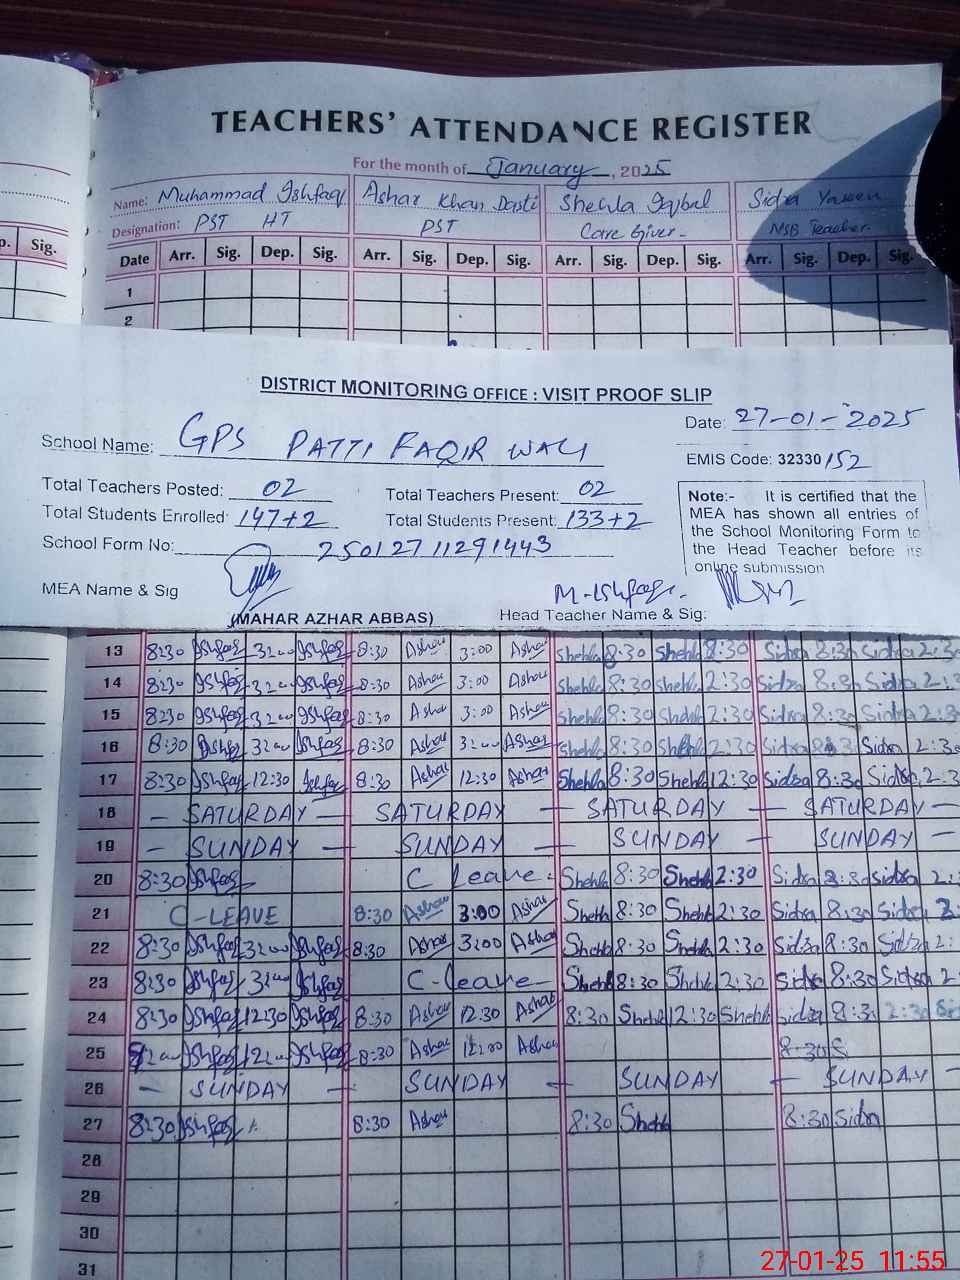 TEACHERS' ATTENDANCE REGISTER
For the month of January, 2025
Name: Muhammad Ishfaq Ashar Khan Dasti Shehla Iqbal Sidra Yaseen
Designation: PST HT PST Care Giver NSB Teacher
p. Sig. Date Arr. Sig. Dep. Sig. Arr. Sig. Dep. Sig. Arr. Sig. Dep. Sig. Arr. Sig. Dep. Sig.
1
2
DISTRICT MONITORING OFFICE : VISIT PROOF SLIP
Date: 27-01-2025
School Name: GPS PATTI FAQIR WALI
EMIS Code: 32330152
Total Teachers Posted: 02 Total Teachers Present: 02
Total Students Enrolled: 147+2 Total Students Present: 133+2
School Form No: 25012711291443
Note:- It is certified that the
MEA has shown all entries of
the School Monitoring Form to
the Head Teacher before its
online submission
MEA Name & Sig
(MAHAR AZHAR ABBAS)
M-Ishfaq.
Head Teacher Name & Sig:
13 8:30 Ishfaq 3:00 Ishfaq 8:30 Ashar 3:00 Ashar Shehla 8:30 Shehla 8:30 Sidra 8:30 Sidra 2:3
14 8:30 Ishfaq 3:00 Ishfaq 8:30 Ashar 3:00 Ashar Shehla 8:30 Shehla 2:30 Sidra 8:30 Sidra 2:3
15 8:30 Ishfaq 3:00 Ishfaq 8:30 Ashar 3:00 Ashar Shehla 8:30 Shehla 2:30 Sidra 8:30 Sidra 2:3
16 8:30 Ishfaq 3:00 Ishfaq 8:30 Ashar 3:00 Ashar Shehla 8:30 Shehla 2:30 Sidra Sidra 2:3
17 8:30 Ishfaq 12:30 Ishfaq 8:30 Ashar 12:30 Ashar Shehla 8:30 Shehla 12:30 Sidra 8:30 Sidra 2:3
18 - SATURDAY - SATURDAY - SATURDAY - SATURDAY -
19 - SUNDAY - SUNDAY - SUNDAY - SUNDAY -
20 8:30 Ishfaq C leave. Shehla 8:30 Shehla 2:30 Sidra 8:30 Sidra 2:
21 C-LEAVE 8:30 Ashar 3:00 Ashar Shehla 8:30 Shehla 2:30 Sidra 8:30 Sidra 2
22 8:30 Ishfaq 3:00 Ishfaq 8:30 Ashar 3:00 Ashar Shehla 8:30 Shehla 2:30 Sidra 8:30 Sidra 2:
23 8:30 Ishfaq 3:00 Ishfaq C-leave Shehla 8:30 Shehla 2:30 Sidra 8:30 Sidra 2
24 8:30 Ishfaq 12:30 Ishfaq 8:30 Ashar 12:30 Ashar 8:30 Shehla 12:30 Shehla Sidra 8:3 2:30 Si
25 Ishfaq 12:00 Ishfaq 8:30 Ashar 12:00 Ashar 8:30 S
26 - SUNDAY - SUNDAY - SUNDAY - SUNDAY -
27 8:30 Ishfaq 8:30 Ashar 8:30 Shehla 8:30 Sidra
28
29
30
31
27-01-25 11:55